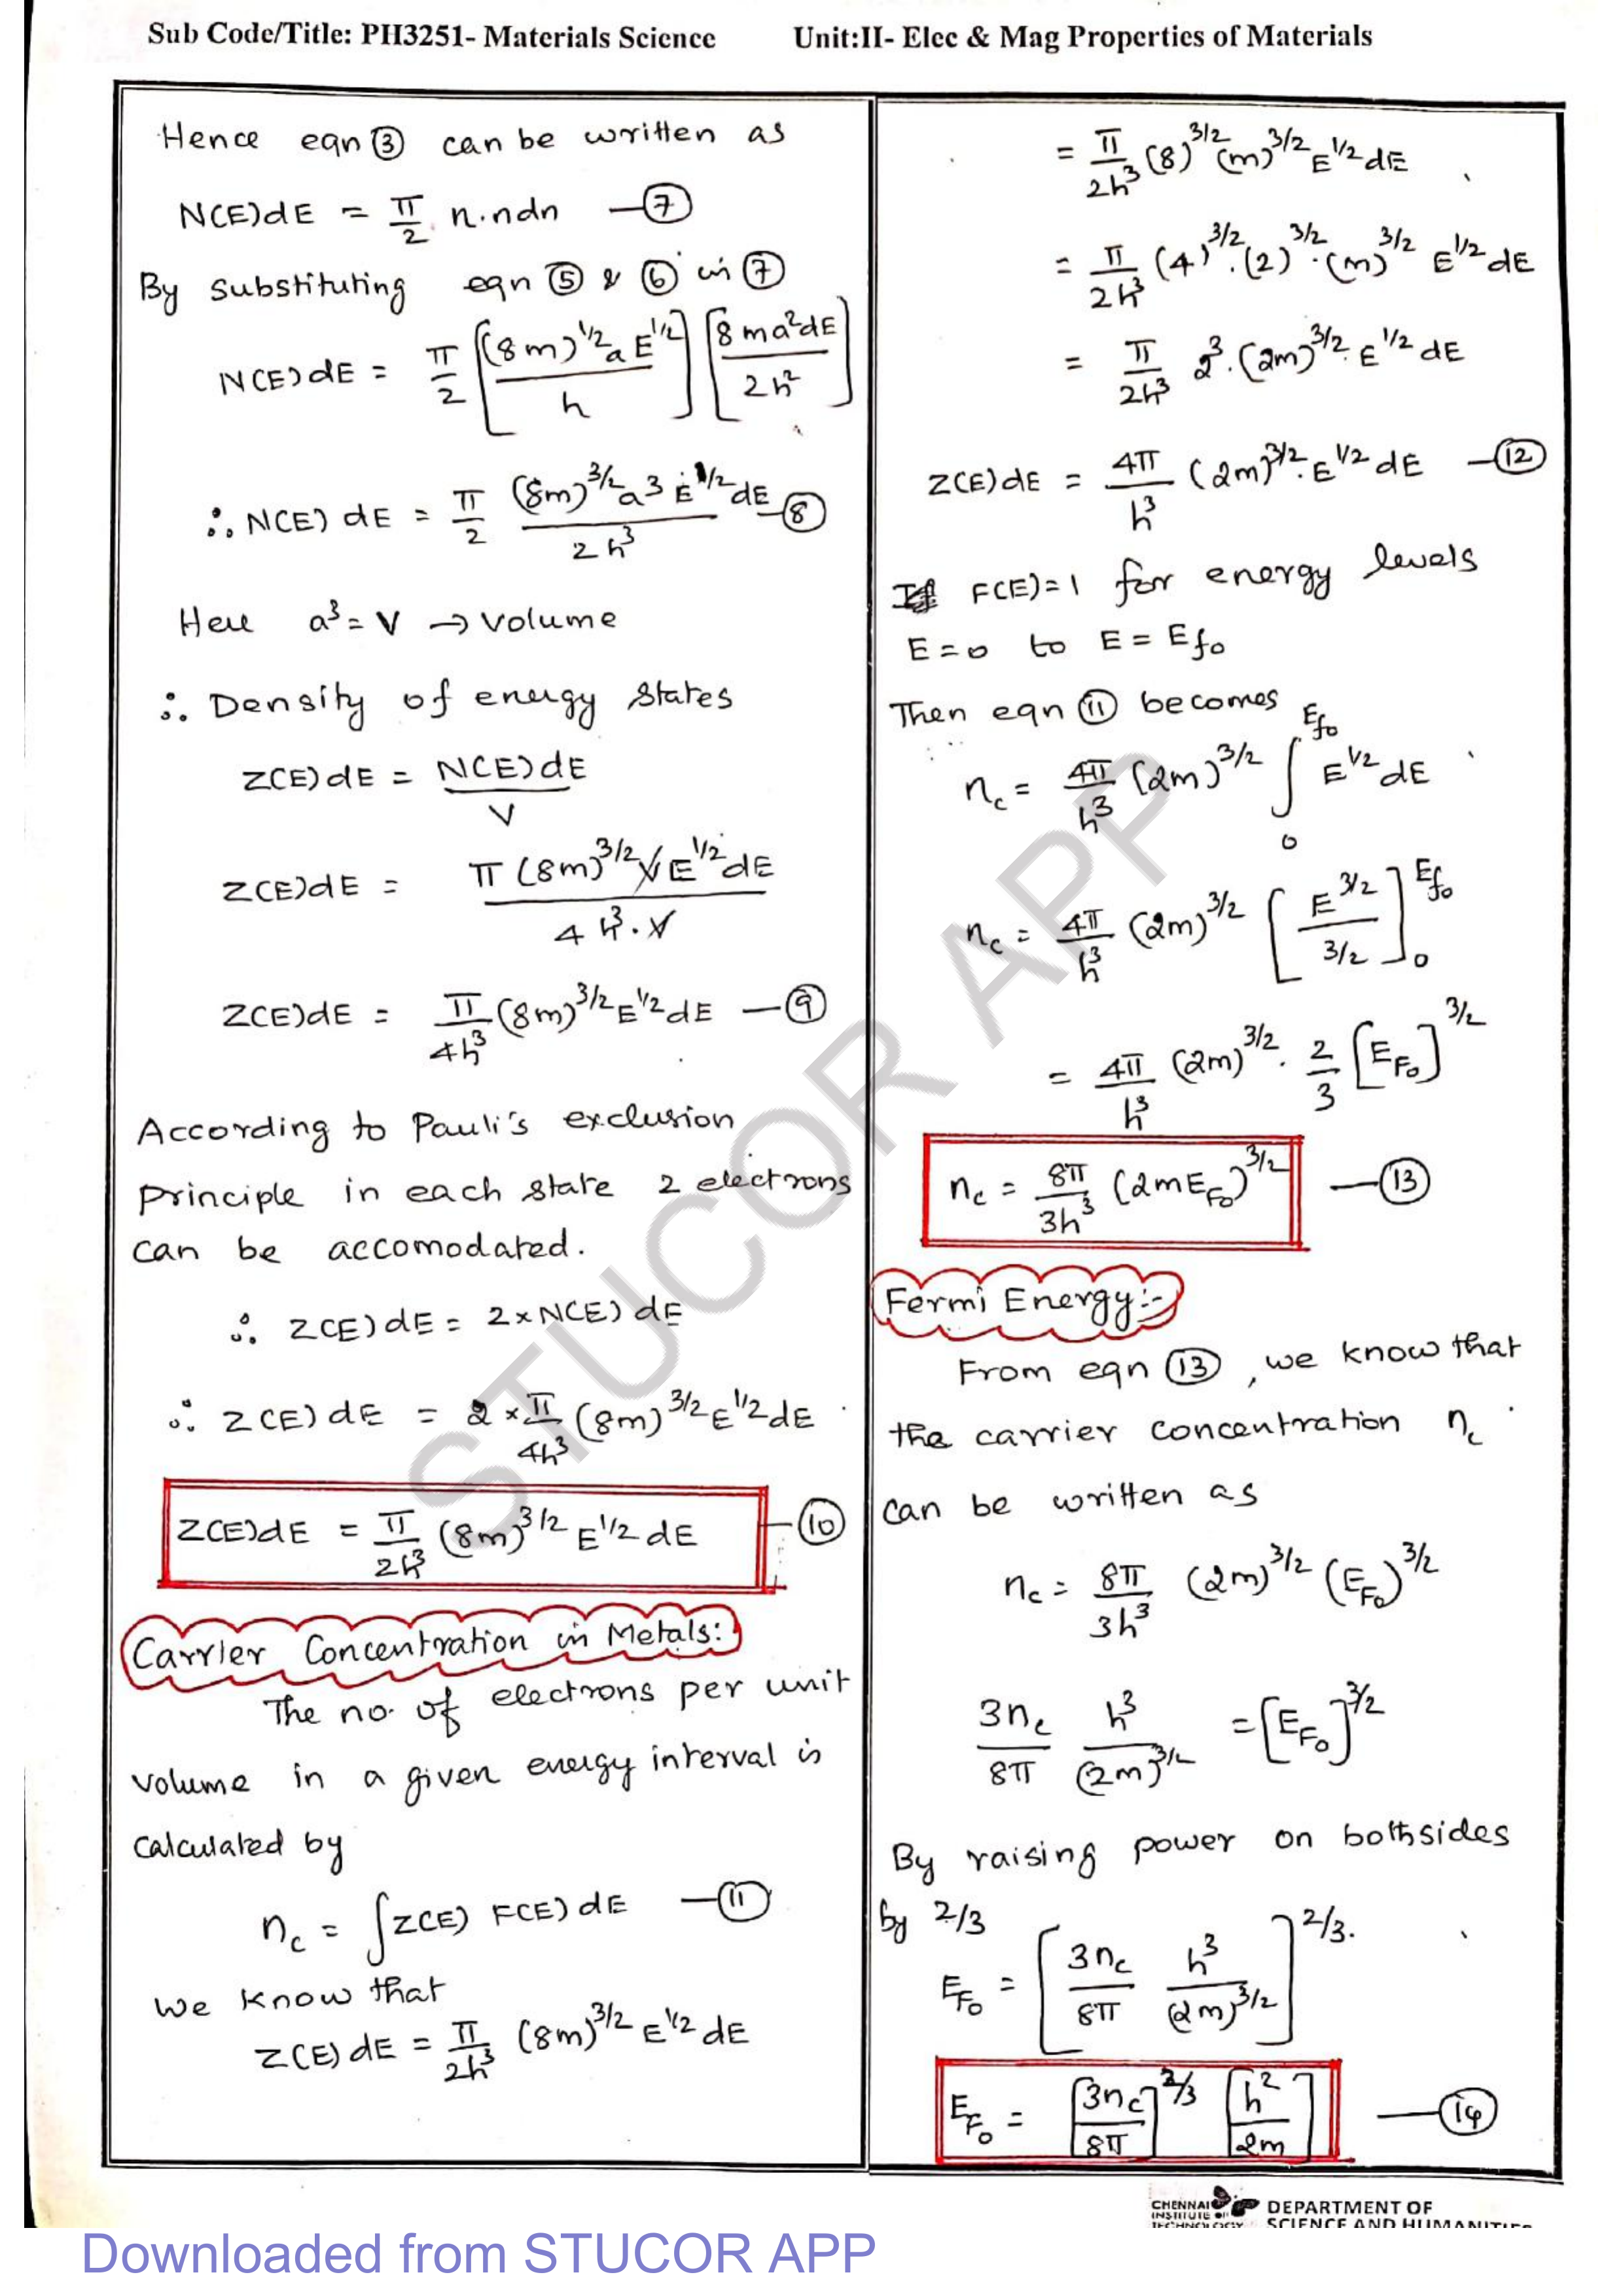 Sub Code/Title: PH3251- Materials Science Unit:II- Elec & Mag Properties of Materials
Hence eqn ③ can be written as
N(E)dE = π/2 n.ndn —⑦
By substituting eqn ⑤ & ⑥ in ⑦
N(E)dE = π/2 [(8m)^1/2 a E^1/2 / h] [8ma²dE / 2h²]
∴ N(E)dE = π/2 (8m)^3/2 a³ E^1/2 dE / 2h³ —⑧
Here a³ = V → volume
∴ Density of energy states
Z(E)dE = N(E)dE / V
Z(E)dE = π(8m)^3/2 V E^1/2 dE / 4h³.V
Z(E)dE = π/4h³ (8m)^3/2 E^1/2 dE —⑨
According to Pauli's exclusion
principle in each state 2 electrons
can be accomodated.
∴ Z(E)dE = 2 × N(E)dE
∴ Z(E)dE = 2 × π/4h³ (8m)^3/2 E^1/2 dE
Z(E)dE = π/2h³ (8m)^3/2 E^1/2 dE —⑩
Carrier Concentration in Metals:
The no. of electrons per unit
volume in a given energy interval is
calculated by
n_c = ∫Z(E) F(E) dE —⑪
We know that
Z(E)dE = π/2h³ (8m)^3/2 E^1/2 dE
= π/2h³ (8)^3/2 (m)^3/2 E^1/2 dE
= π/2h³ (4)^3/2.(2)^3/2.(m)^3/2 E^1/2 dE
= π/2h³ 2³.(2m)^3/2.E^1/2 dE
Z(E)dE = 4π/h³ (2m)^3/2.E^1/2 dE —⑫
If F(E)=1 for energy levels
E=0 to E = E_f₀
Then eqn ⑪ becomes
n_c = 4π/h³ (2m)^3/2 ∫₀^E_f₀ E^1/2 dE
n_c = 4π/h³ (2m)^3/2 [E^3/2 / 3/2]₀^E_f₀
= 4π/h³ (2m)^3/2 . 2/3 [E_F₀]^3/2
n_c = 8π/3h³ (2mE_F₀)^3/2 —⑬
Fermi Energy:-
From eqn ⑬, we know that
the carrier concentration n_c
can be written as
n_c = 8π/3h³ (2m)^3/2 (E_F₀)^3/2
3n_c/8π h³/(2m)^3/2 = [E_F₀]^3/2
By raising power on bothsides
by 2/3
E_F₀ = [3n_c/8π h³/(2m)^3/2]^2/3.
E_F₀ = [3n_c/8π]^2/3 [h²/2m] —⑭
STUCOR APP
CHENNAI
INSTITUTE OF
TECHNOLOGY
DEPARTMENT OF
SCIENCE AND HUMANITIES
Downloaded from STUCOR APP